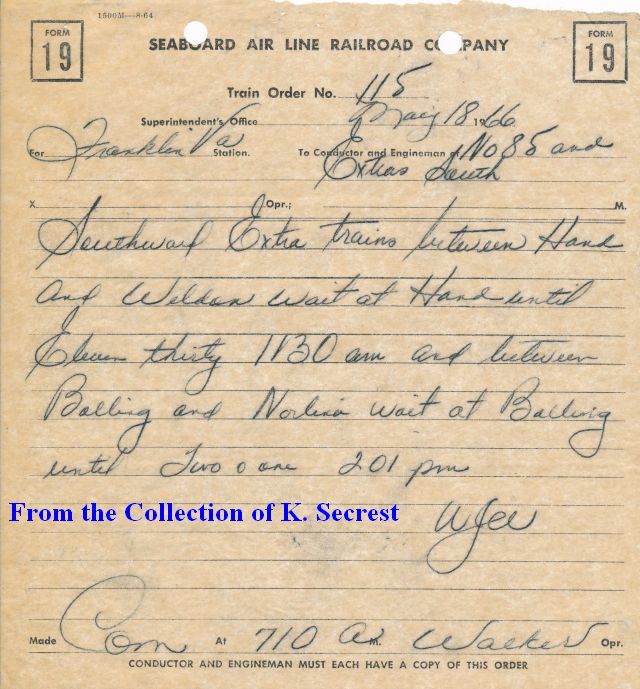 1500M—8-64
FORM 19
SEABOARD AIR LINE RAILROAD COMPANY
FORM 19
Train Order No. 115
Superintendent's Office May 18 1966
For Franklin Va Station. To Conductor and Engineman of No 85 and
Extras South
X Opr.; M.
Southward Extra trains between Hand
and Weldon wait at Hand until
Eleven thirty 1130 am and between
Bolling and Norlina wait at Bolling
until Two o one 201 pm
From the Collection of K. Secrest
Made Com At 710 a M. Walker Opr.
CONDUCTOR AND ENGINEMAN MUST EACH HAVE A COPY OF THIS ORDER